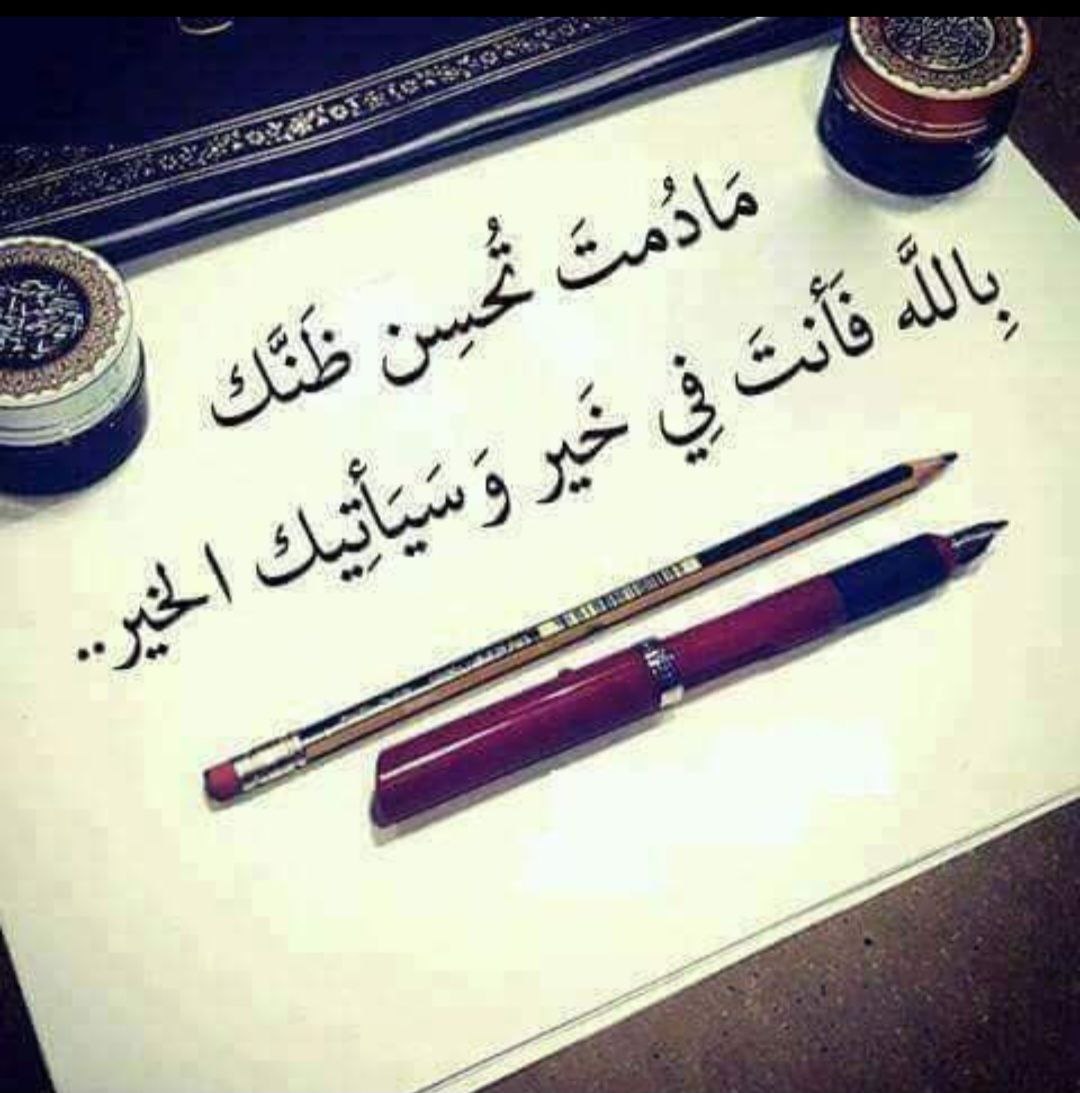 مَادُمتَ تُحسِن ظَنَّك
بِاللَّه فَأَنتَ فِي خَير وَسَيَأتِيك الخير..